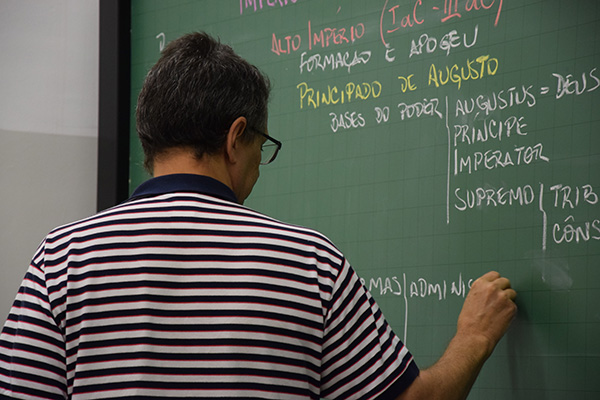 IMPÉRIO
ALTO IMPÉRIO (I aC - III dC)
FORMAÇÃO E APOGEU
PRINCIPADO DE AUGUSTO
BASES DO PODER
AUGUSTUS = DEUS
PRÍNCIPE
IMPERATOR
SUPREMO
TRIB
CÔNS
MAS ADMINIS